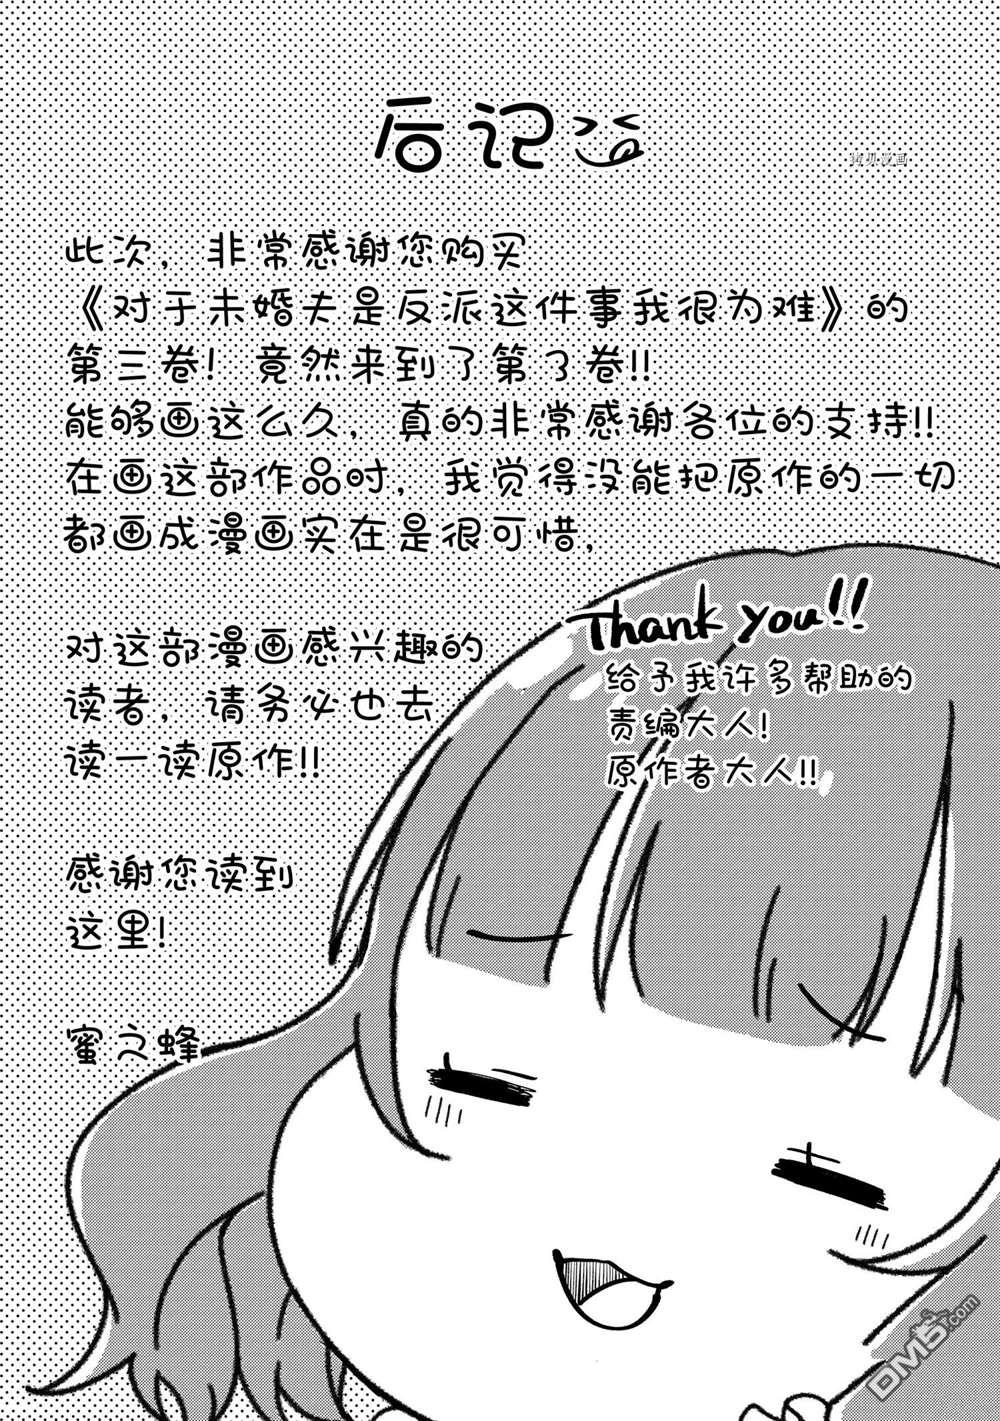 后记
拷贝漫画
此次，非常感谢您购买
《对于未婚夫是反派这件事我很为难》的
第三卷！竟然来到了第了卷!!
能够画这么久，真的非常感谢各位的支持!!
在画这部作品时，我觉得没能把原作的一切
都画成漫画实在是很可惜，
对这部漫画感兴趣的
读者，请务必也去
读一读原作!!
感谢您读到
这里！
蜜之蜂
Thank you!!
给予我许多帮助的
责编大人！
原作者大人!!
DM5.com